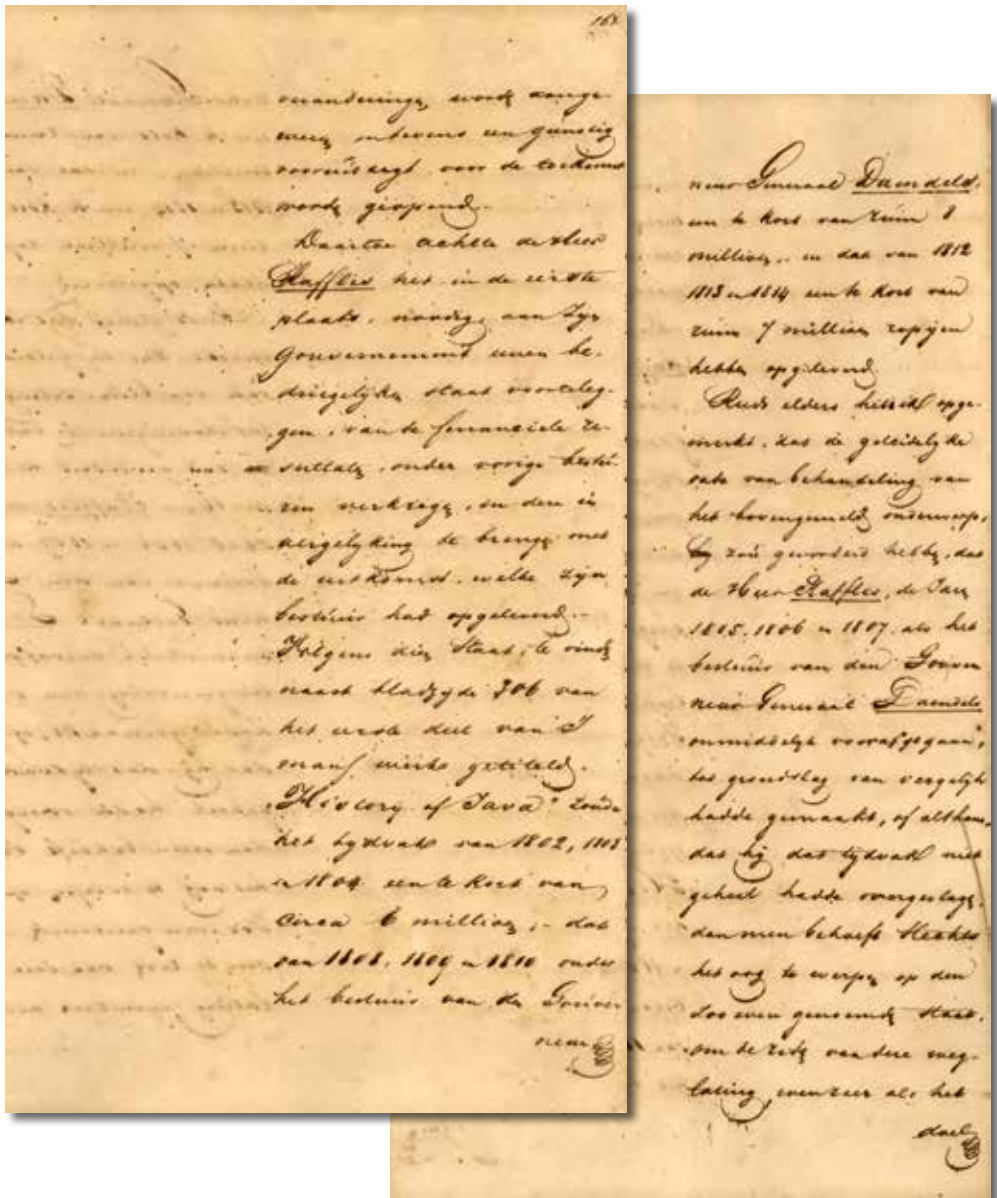 veranderinge, word aange-
weez, intevens een gunstig
vooruitzigt, voor de toekomst
word, geopend.
Daartoe achtte de Heer
Raffles het in de eerste
plaats, noodig, aan Zyn
Gouvernement eenen be-
driegelyke staat voorteleg-
gen, van de financiele re-
sultate, onder vorige bestu-
ren verkrege, en deze in
vergelyking te breng, met
de uitkomst, welke zyn
bestuur had opgeleverd.
Volgens die Staat, te vind
naast bladzyde 306 van
het eerste deel van
werks getiteld,
"History of Java" zoude
het tydvak van 1802, 1803
en 1804 een te kort van
circa 6 million; dat
van 1808, 1809 en 1810 onder
het bestuur van den Gouver-
neur
neur Generaal Daendels,
een te kort van ruim 8
million, en dat van 1812
1813 en 1814 een te kort van
ruim 7 million ropijen
hebbe opgeleverd.
Reeds elders heb ik opge-
merkt, dat de geleidelyke
van behandeling van
het bovengemeld onderwerp,
zou gevorderd hebbe, dat
de Heer Raffles, de Jare
1805, 1806 en 1807, als het
bestuur van den Gouver
neur Generaal Daendels
onmiddelyk voorafgegaan,
tot grondslag van vergelyk
hadde gemaakt, of althans,
dat hij dat tydvak niet
geheel hadde overgeslage,
dan men behoeft slechts
het oog te werpe op den
zoo even genoemde Staat,
om de rede van deze weg-
lating, evenzeer als het
doel